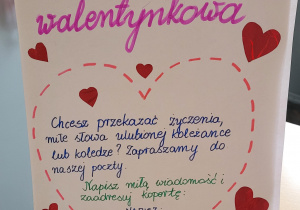 walentynkowa
Chcesz przekazać życzenia,
miłe słowa ulubionej koleżance
lub koledze? Zapraszamy do
naszej poczty
Napisz miłą wiadomość i
zaadresuj kopertę: